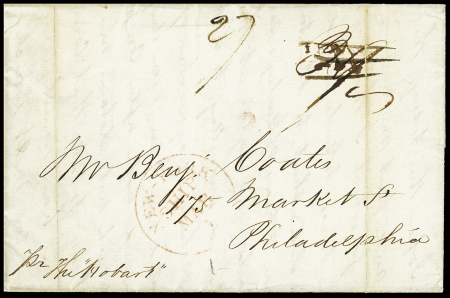 27
Mr Benj. Coates
175 Market St
Philadelphia
NEW
SHIP
pr The "Hobart"